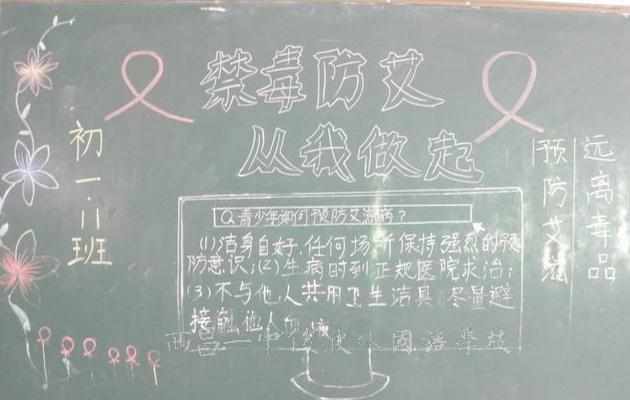 禁毒防艾
从我做起
初一.11班
Q青少年如何预防艾滋病?
(1)洁身自好,任何场所保持强烈的预
防意识;(2)生病时到正规医院求治;
(3)不与他人共用卫生洁具,尽量避
接触他人血液
远离毒品
预防艾滋